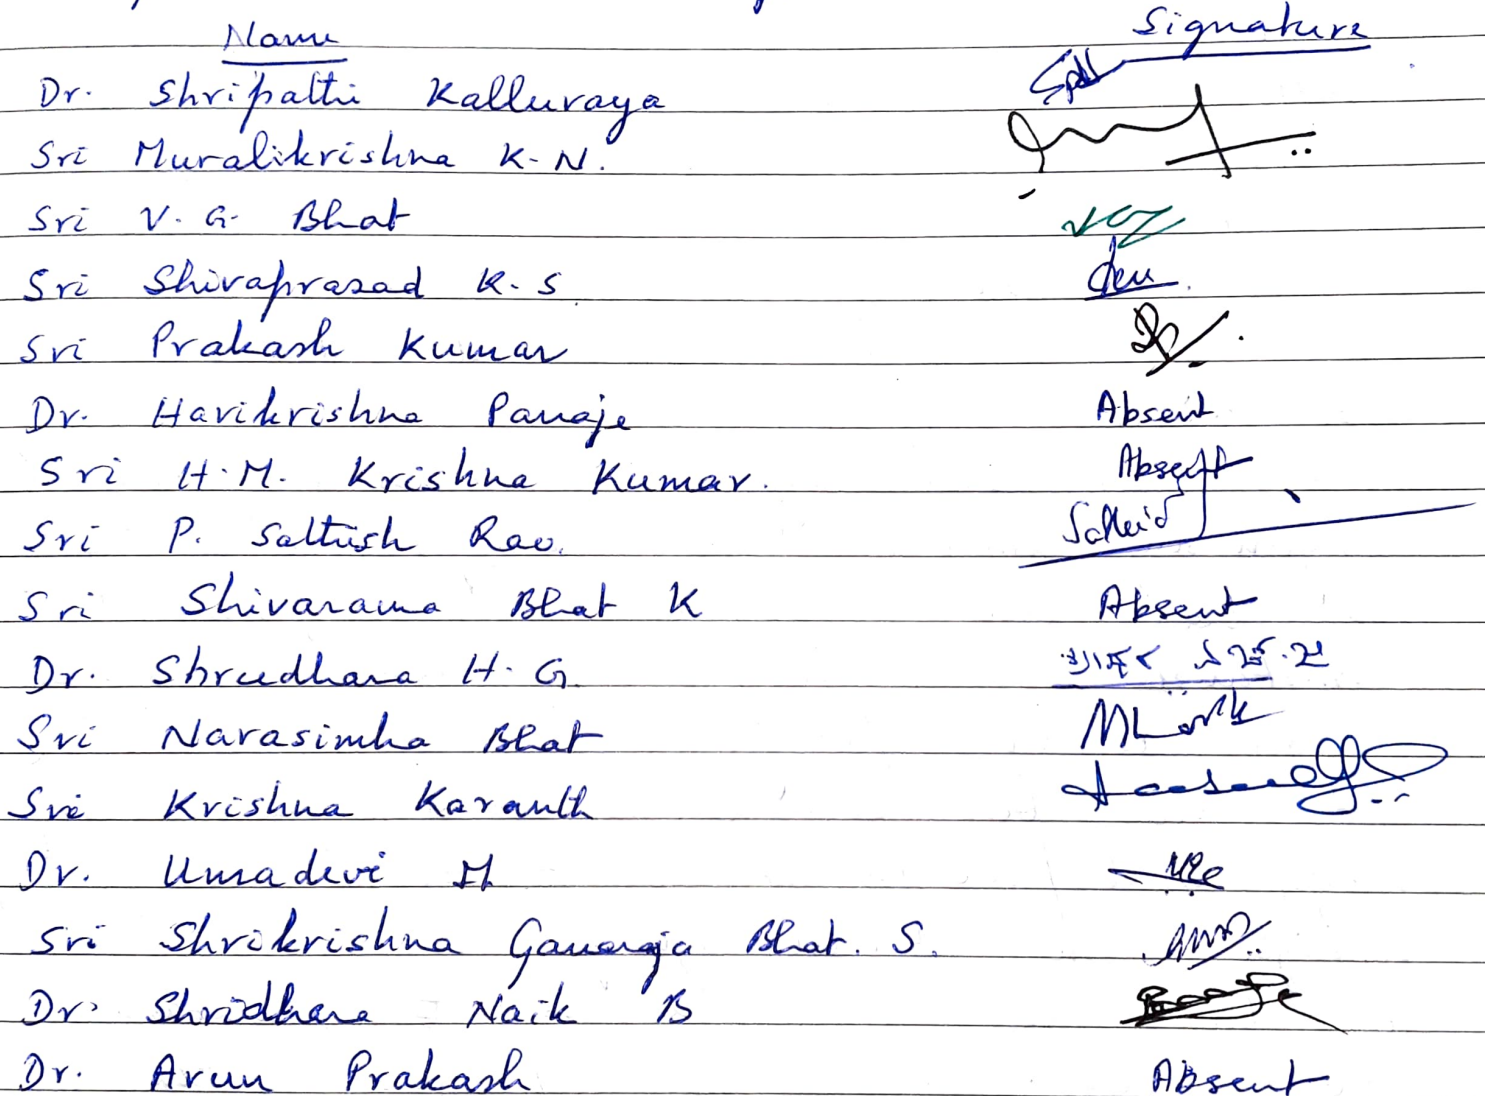 Name Signature
Dr. Shripathi Kalluraya
Sri Muralikrishna K-N.
Sri V. G. Bhat
Sri Shivaprasad K-S
Sri Prakash Kumar
Dr. Harikrishna Panaje Absent
Sri H.M. Krishna Kumar. Absent
Sri P. Sathish Rao.
Sri Shivarama Bhat K Absent
Dr. Shreedhara H.G.
Sri Narasimha Bhat
Sri Krishna Karanth
Dr. Umadevi M
Sri Shrikrishna Ganaraja Bhat. S.
Dr. Shridhara Naik B
Dr. Arun Prakash Absent